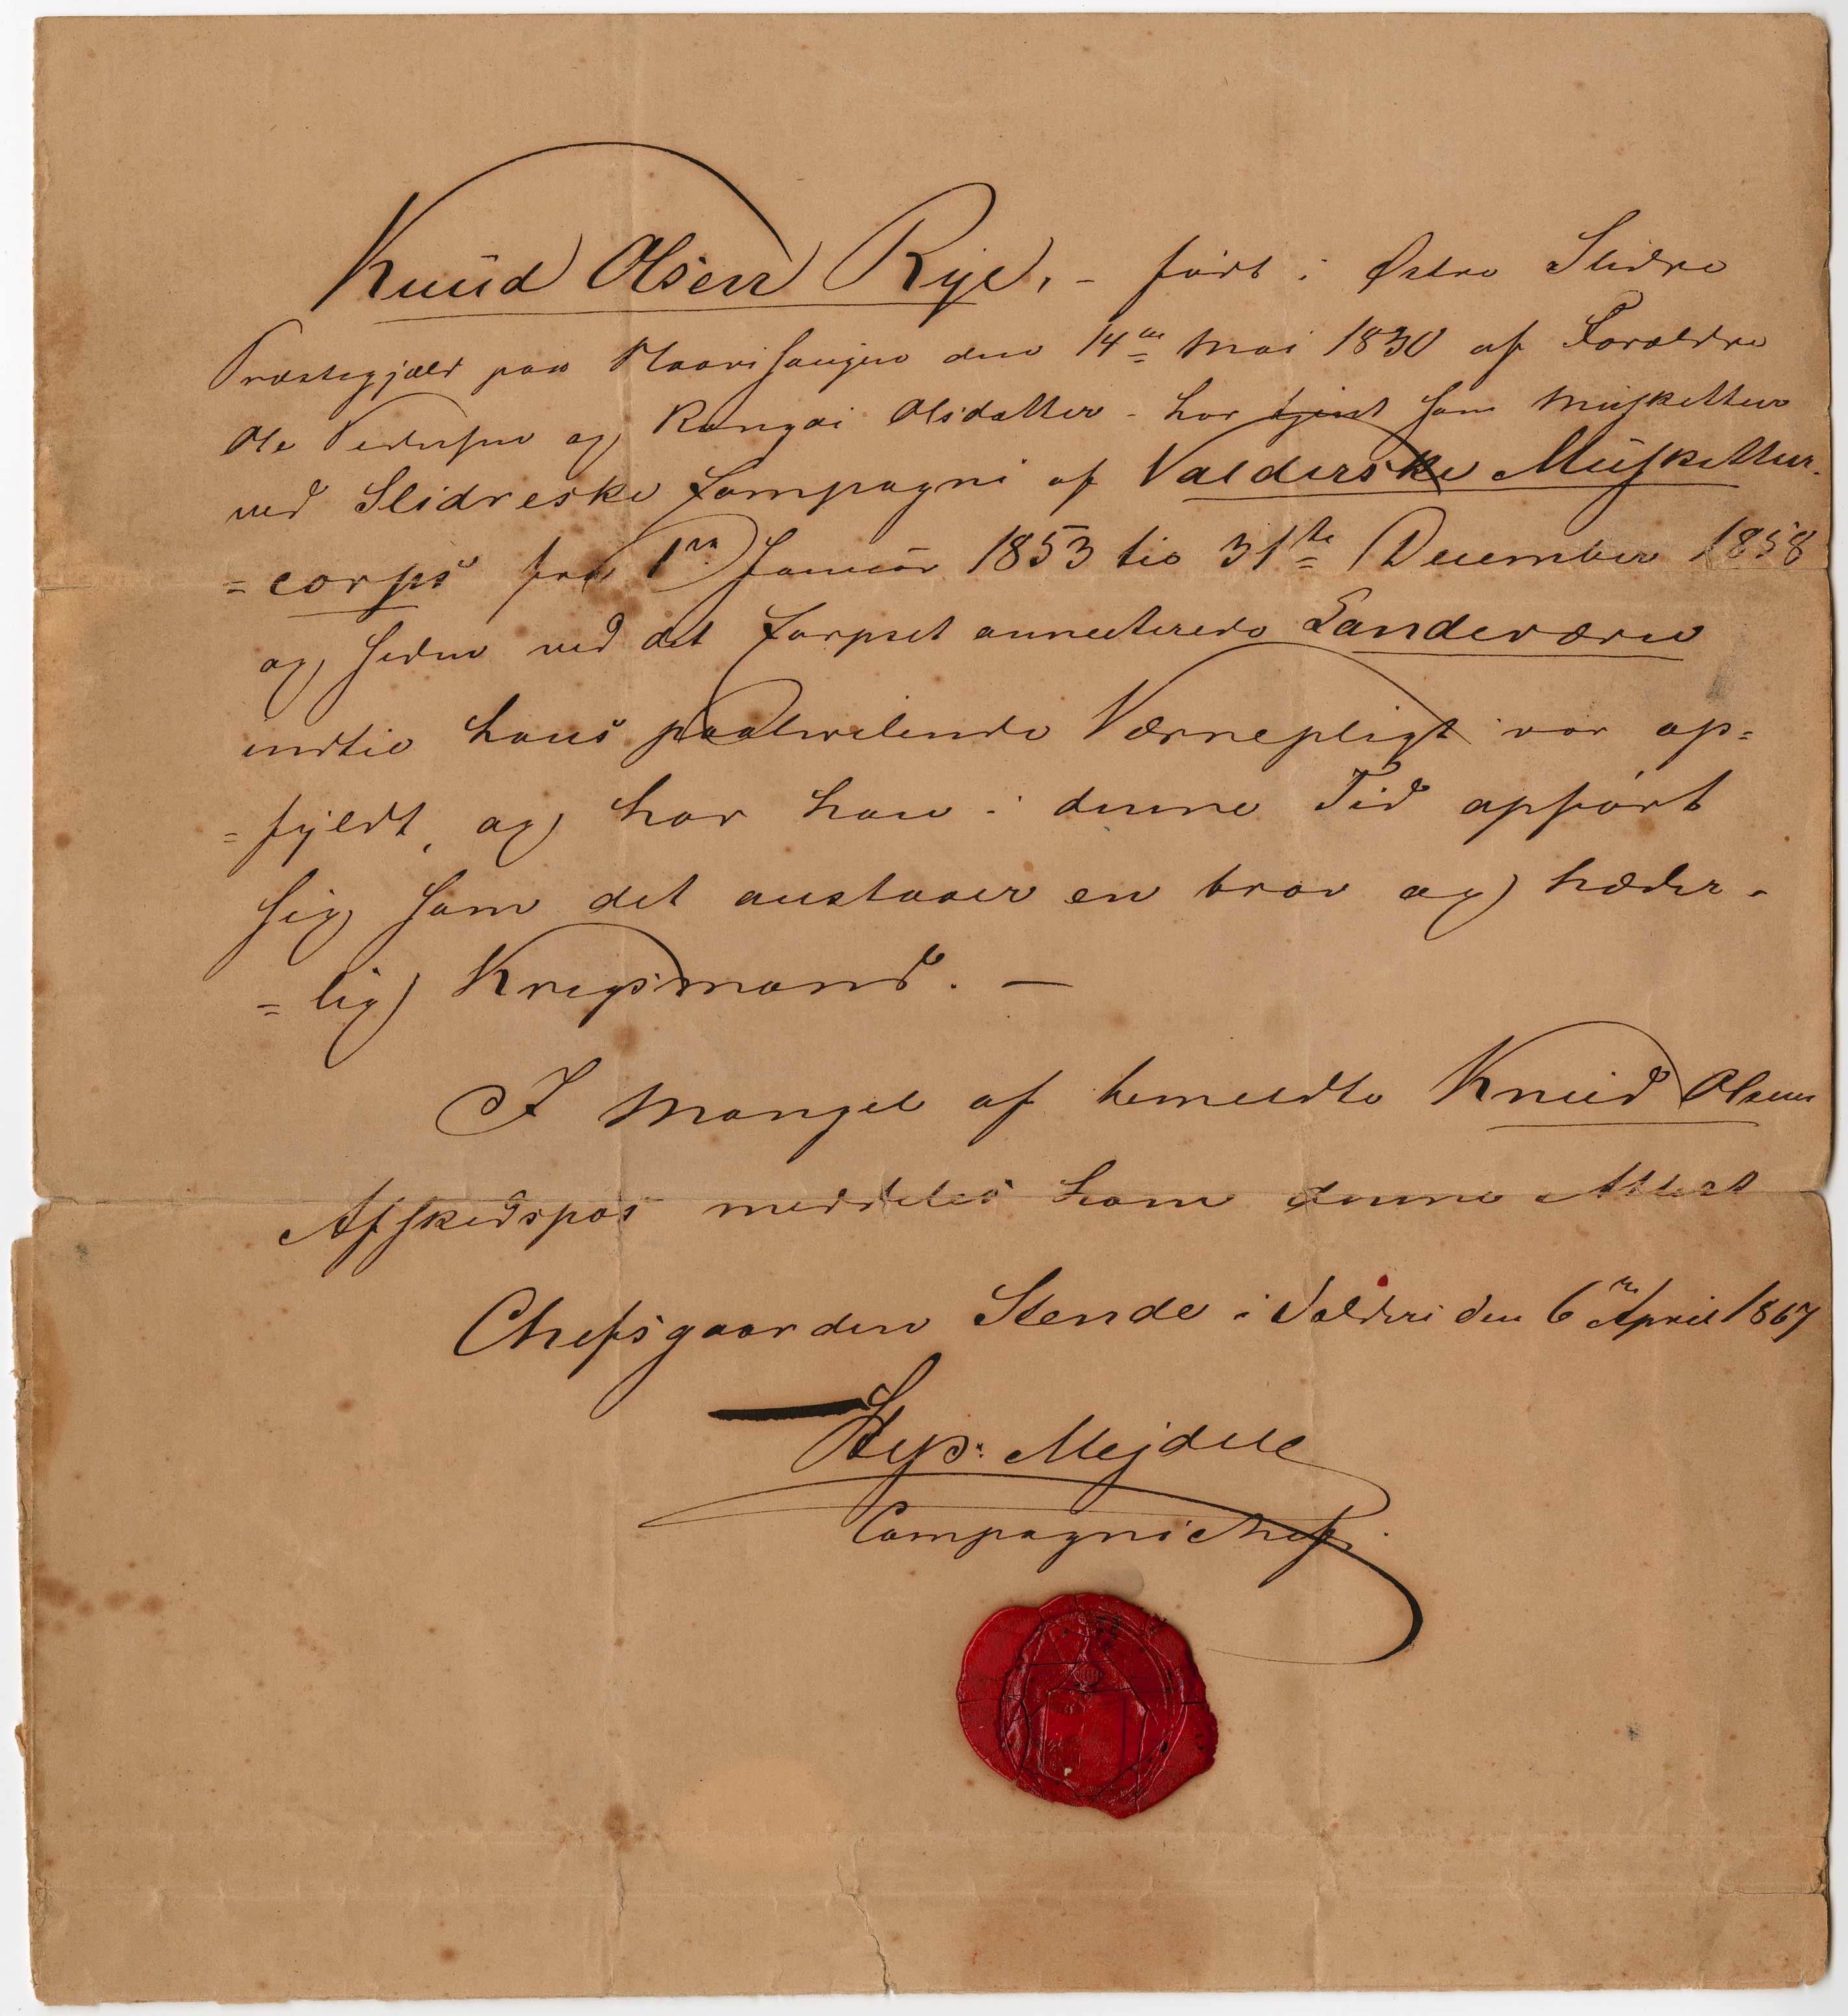 Knud Olsen Rye, - født i Østre Slidre
Præstegjæld paa den 14de Mai 1830 af Forældre
Ole Pedersen og Rangdi Olsdatter - har tjent som Musketteer
ved Slidreske Compagni af Valderske Musketteer-
=corps fra 1ste Januar 1853 til 31te December 1858
og siden ved det Corpset annecterede Landeværn
indtil hans paahvilende Værnepligt var op=
=fyldt, og har han i denne Tid opført
sig som det anstaaer en brav og hæder-
=lig Krigsmand. —
I Mangel af bemeldte Knud Olsens
Afskedspas meddeles ham denne Attest
Chefsgaarden Stende i Valders den 6te April 1867
Mejdell
Compagnichef.